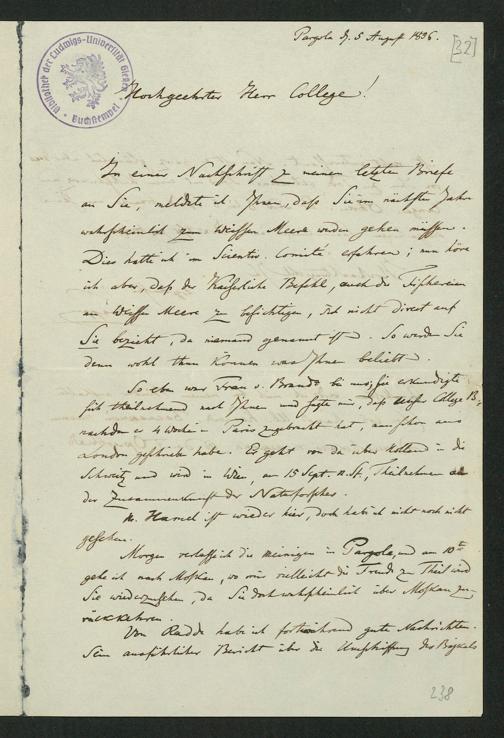 Pargola d. 5 August 1856.
[32]
Bibliothek der Ludwigs-Universität Gießen
Buchstempel
Hochgeehrter Herr College!
In einer Nachschrift zu meinem letzten Briefe
an Sie, meldete ich Ihnen, daß Sie im nächsten Jahr
wahrscheinlich zum Weissen Meere werden gehen müssen.
Dies hatte ich im Scientif. Comité erfahren; nun höre
ich aber, daß der Kaiserliche Befehl, auch die Fischereien
am Weissen Meere zu besichtigen, sich nicht direct auf
Sie bezieht, da niemand genannt ist. So werden Sie
denn wohl thun können was Ihnen beliebt.
So eben war Frau v. Brandt bei uns; sie erkundigte
sich theilnehmend nach Ihnen und sagte mir, daß unser College B.,
nachdem er 4 Wochen in Paris zugebracht hat, nun schon aus
London geschrieben habe. Er geht von da über Holland in die
Schweitz und wird in Wien, am 15 Sept. n. St., Theil nehmen an
der Zusammenkunft der Naturforscher.
H. Hamel ist wieder hier, doch hab ich ihn noch nicht
gesehen.
Morgen verlasse ich die meinigen in Pargola, und am 10ten
gehe ich nach Moskau, wo mir vielleicht die Freude zu Theil wird
Sie wiederzusehen, da Sie doch wahrscheinlich über Moskau zu-
rückkehren.
Von Radde hab ich fortwährend gute Nachrichten.
Sein ausführlicher Bericht über die Umschiffung des Baikals
238